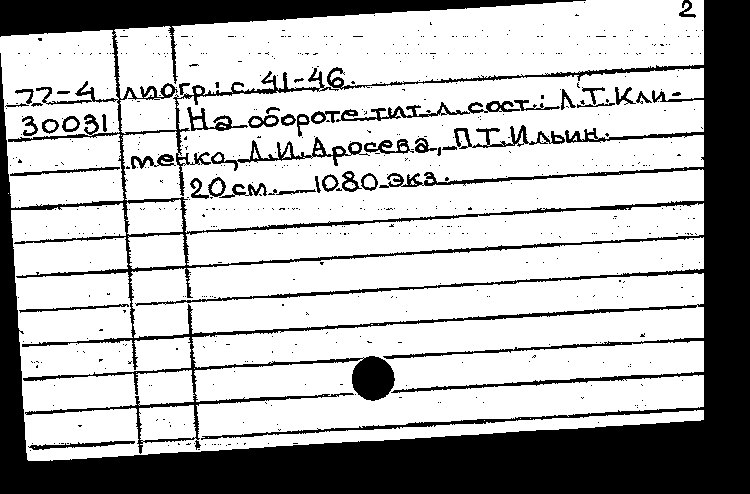 2
77-4 лиогр.: с. 41-46.
30031 На обороте тит.л. сост.: Л.Т.Кли-
менко, Л.И.Аросева, П.Т.Ильин.
20 см. 1080 экз.